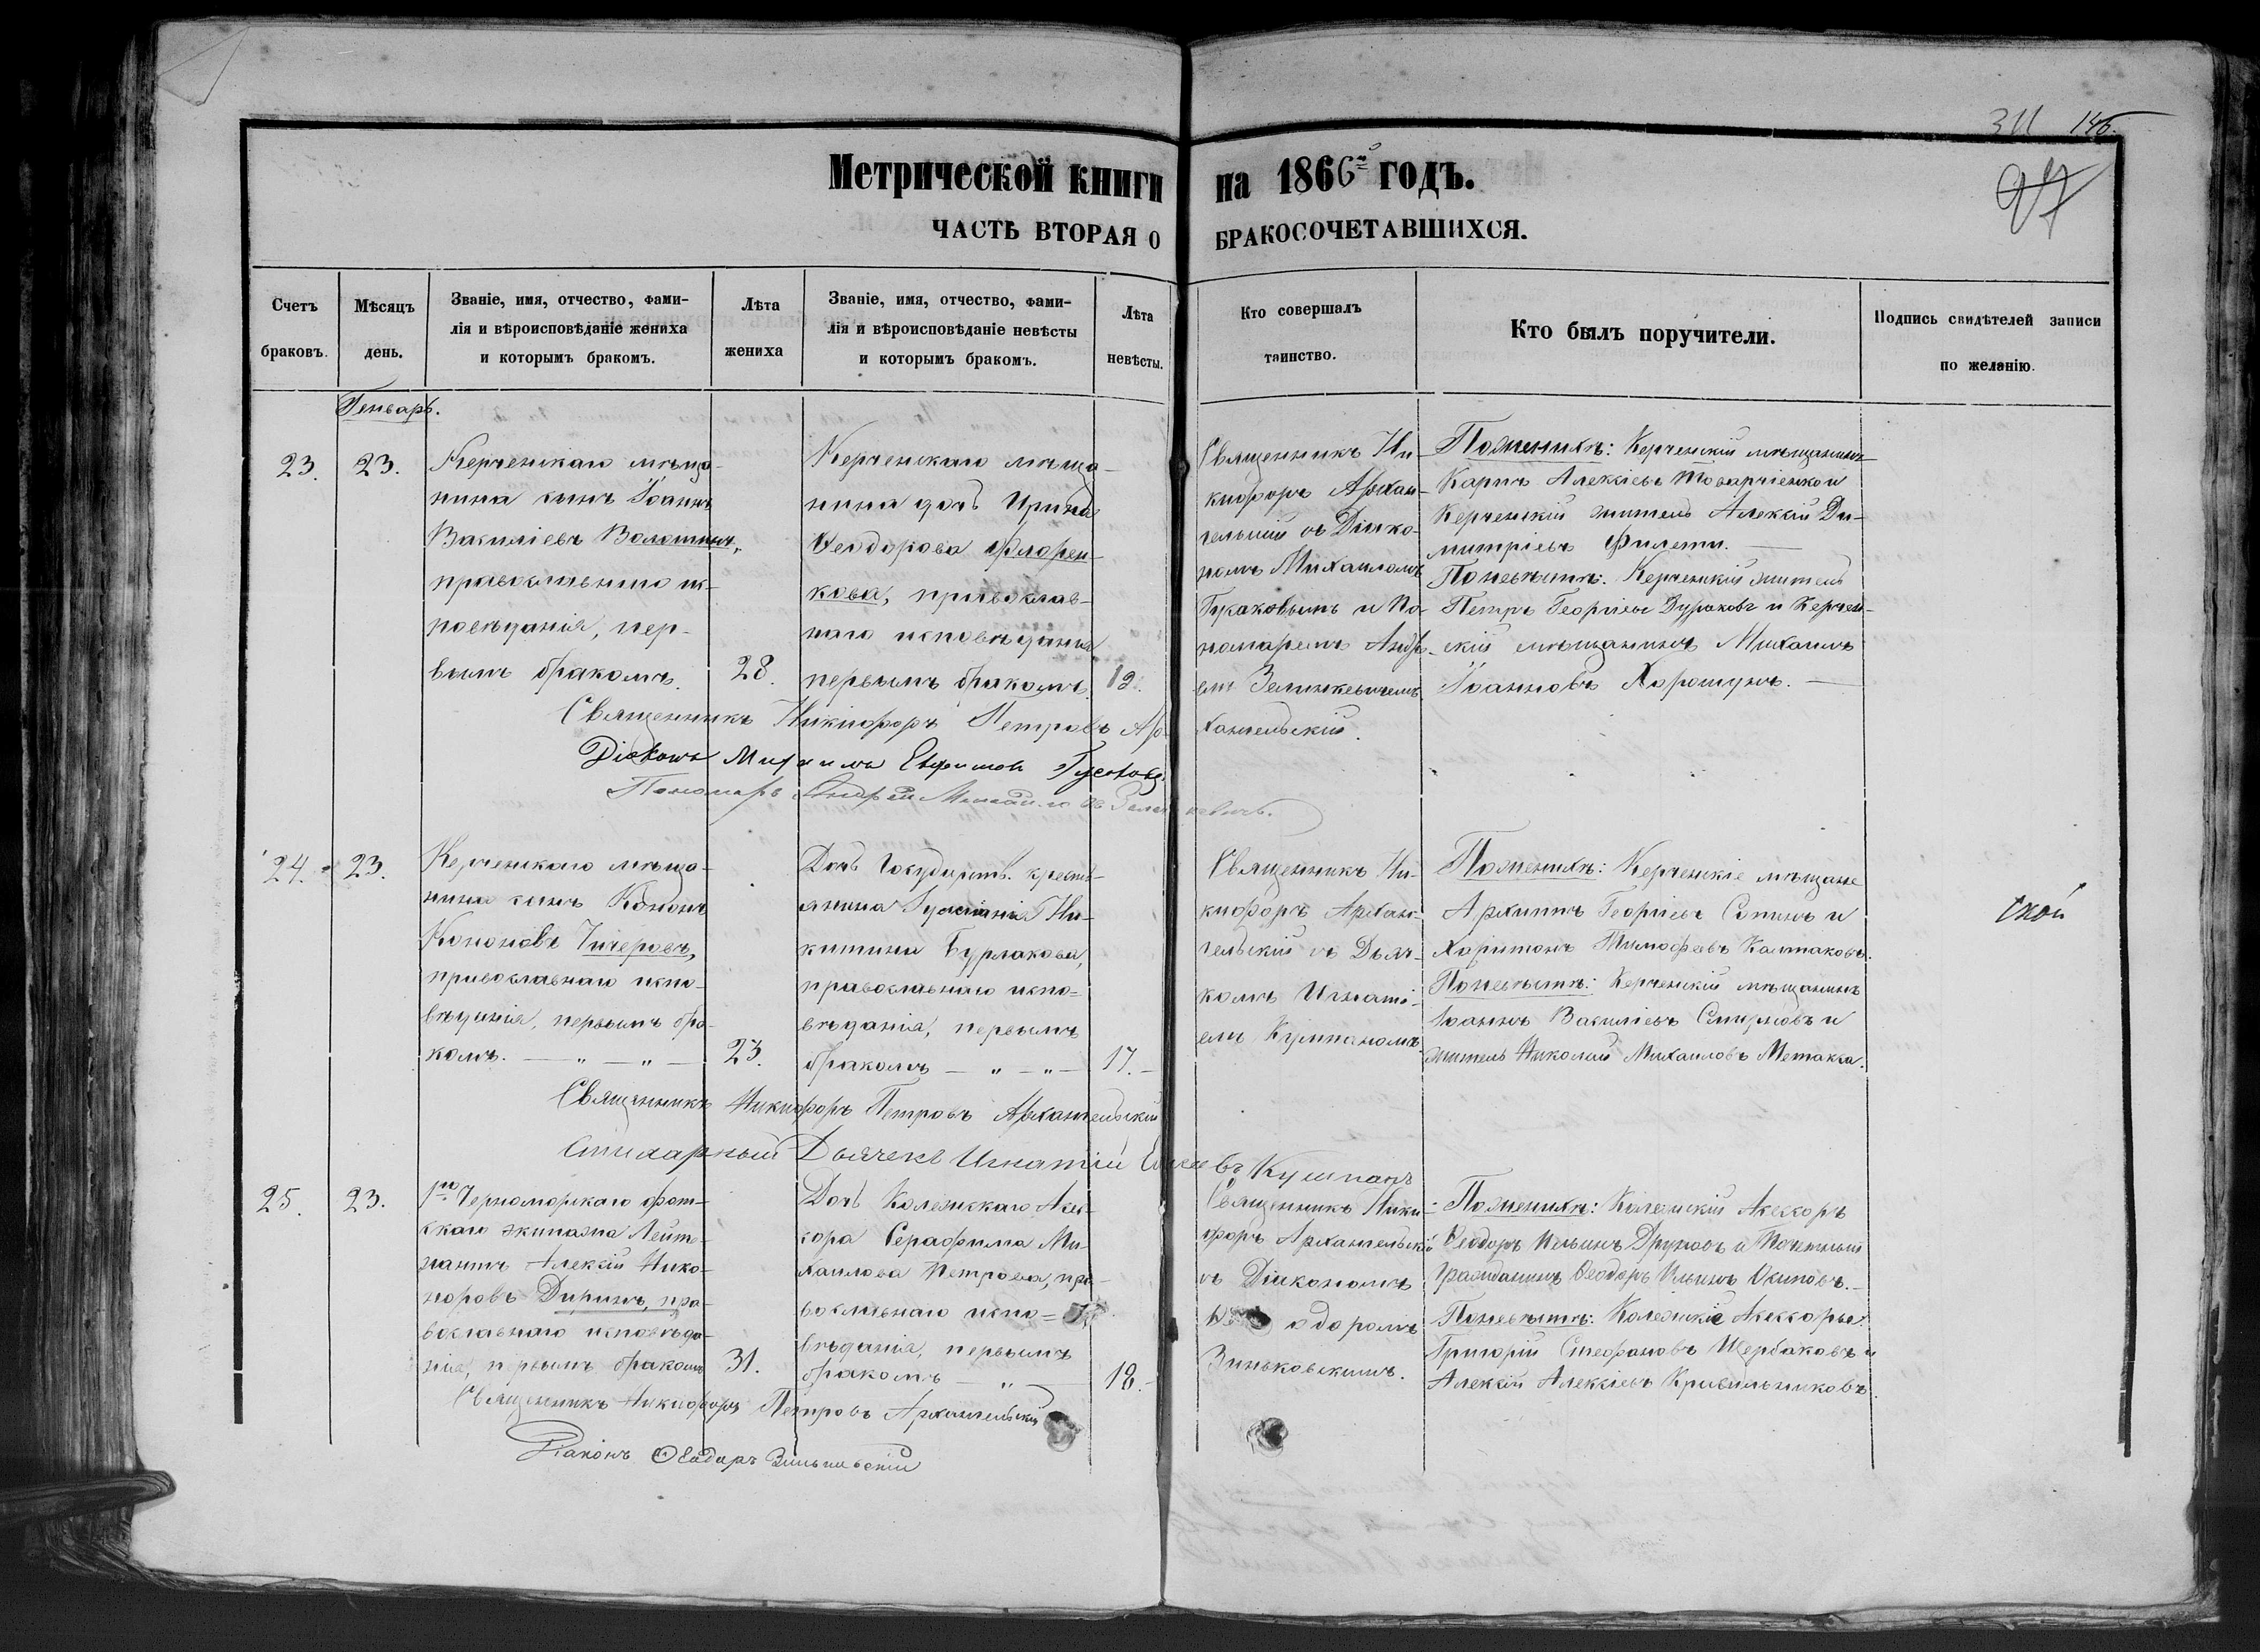 311 146.
97
Метрической книги на 1866й годъ.
ЧАСТЬ ВТОРАЯ О БРАКОСОЧЕТАВШИХСЯ.
Счетъ браковъ.
Мѣсяцъ день.
Званіе, имя, отчество, фами-
лія и вѣроисповѣданіе жениха
и которымъ бракомъ.
Лѣта жениха
Званіе, имя, отчество, фами-
лія и вѣроисповѣданіе невѣсты
и которымъ бракомъ.
Лѣта невѣсты.
Кто совершалъ таинство.
Кто былъ поручители.
Подпись свидѣтелей записи
по желанію.
Генварь.
23.
23.
Керченскаго мѣща-
нина сынъ Іоаннъ
Василіевъ Волошинъ,
православнаго ис-
повѣданія, пер-
вымъ бракомъ.
28.
Керченскаго мѣща-
нина дочь Ирина
Ѳеодорова Флорен-
кова, православ-
наго исповѣданія
первымъ бракомъ.
Священникъ Ни-
кифоръ Архан-
гельскій съ Діако-
номъ Михаиломъ
и По-
номаремъ Андре-
емъ Зелинкевичемъ
Поженихѣ: Керченскій мѣщанинъ
Карпъ Алексіевъ и
Керченскій житель Алексій Ди-
митріевъ Филети.
Поневѣстѣ: Керченскій житель
Петръ Георгіевъ Дураковъ и Керчен-
скій мѣщанинъ Михаилъ
Іоанновъ Хорошунъ.
Священникъ Никифоръ Петровъ Архангельскій.
Діаконъ Михаилъ Ефимовъ
Пономарь Андрей Михайловъ Зелинкевичъ.
24.
23.
Керченскаго мѣща-
нина сынъ Кононъ
Кононовъ Чичеровъ,
православнаго испо-
вѣданія, первымъ бра-
комъ. — „ — „ —
23.
Дочь Государств. кресть-
янина Ни-
китина Бурлакова,
православнаго испо-
вѣданія, первымъ
бракомъ — „ — „ —
17.
Священникъ Ни-
кифоръ Архан-
гельскій съ Дьяч-
комъ Игнаті-
емъ Кушпаномъ.
Поженихѣ: Керченскіе мѣщане
Архиппъ Георгіевъ Сопинъ и
Харитонъ Тимофѣевъ Калпаковъ.
Поневѣстѣ: Керченскій мѣщанинъ
Іоаннъ Василіевъ Смирновъ и
житель Николай Михаиловъ Метакса.
ской
Священникъ Никифоръ Петровъ Архангельскій
Стихарный Дьячекъ Игнатій Кушпанъ
25.
23.
1го Черноморскаго флот-
скаго экипажа Лейте-
нантъ Алексій Нико-
норовъ Диринъ, пра-
вославнаго исповѣда-
нія, первымъ бракомъ
31.
Дочь Колежскаго Асес-
сора Серафима Ми-
хаилова Петрова, пра-
вославнаго испо-
вѣданія, первымъ
бракомъ — „ —
18.
Священникъ Ники-
форъ Архангельскій
съ Діакономъ
одоромъ
Зиньковскимъ.
Поженихѣ: Колежскій Асессоръ
Ѳеодоръ Ильинъ Друковъ и Почетный
Гражданинъ Ѳеодоръ Ильинъ Осиповъ.
Поневѣстѣ: Колежскіе Асессоры:
Григорій Стефановъ Щербаковъ и
Алексій Алексіевъ Красильниковъ.
Священникъ Никифоръ Петровъ Архангельскій
Діаконъ Ѳеодоръ Зиньковскій